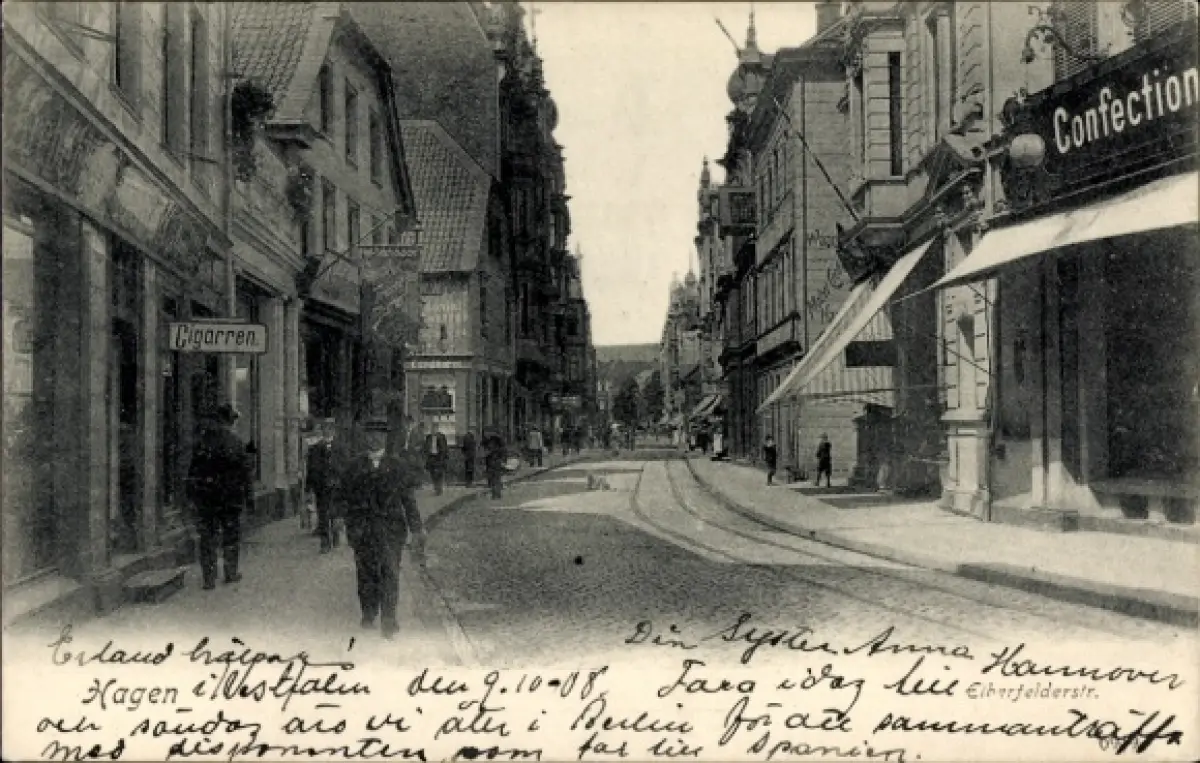 Confection
Cigarren.
Din Syster Anna
Erland hälsar
Hagen i Westfalen den 9.10-08. Fara idag till Hannover
Elberfelderstr.
och söndag äro vi åter i Berlin för att sammanträffa
med disponenten, som far till Spanien.